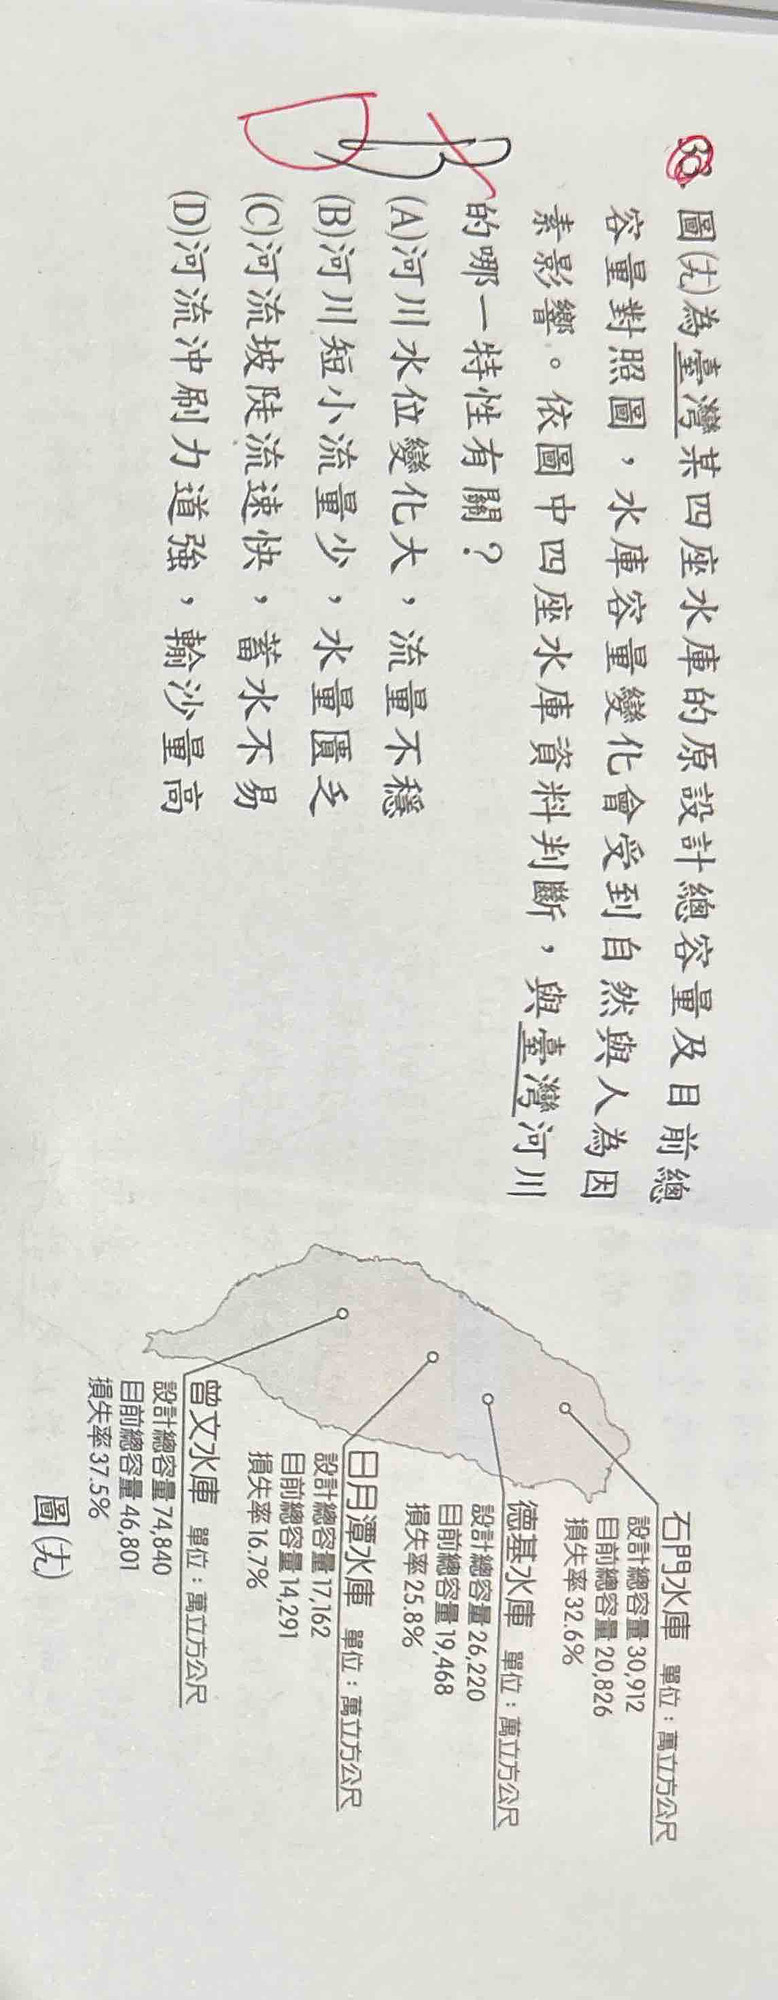 38. 圖(九)為臺灣某四座水庫的原設計總容量及目前總
容量對照圖，水庫容量變化會受到自然與人為因
素影響。依圖中四座水庫資料判斷，與臺灣河川
的哪一特性有關？
B
D
(A)河川水位變化大，流量不穩
(B)河川短小流量少，水量匱乏
(C)河流坡陡流速快，蓄水不易
(D)河流沖刷力道強，輸沙量高
石門水庫 單位：萬立方公尺
設計總容量30,912
目前總容量20,826
損失率32.6%
德基水庫 單位：萬立方公尺
設計總容量26,220
目前總容量19,468
損失率25.8%
日月潭水庫 單位：萬立方公尺
設計總容量17,162
目前總容量14,291
損失率16.7%
曾文水庫 單位：萬立方公尺
設計總容量74,840
目前總容量46,801
損失率37.5%
圖(九)